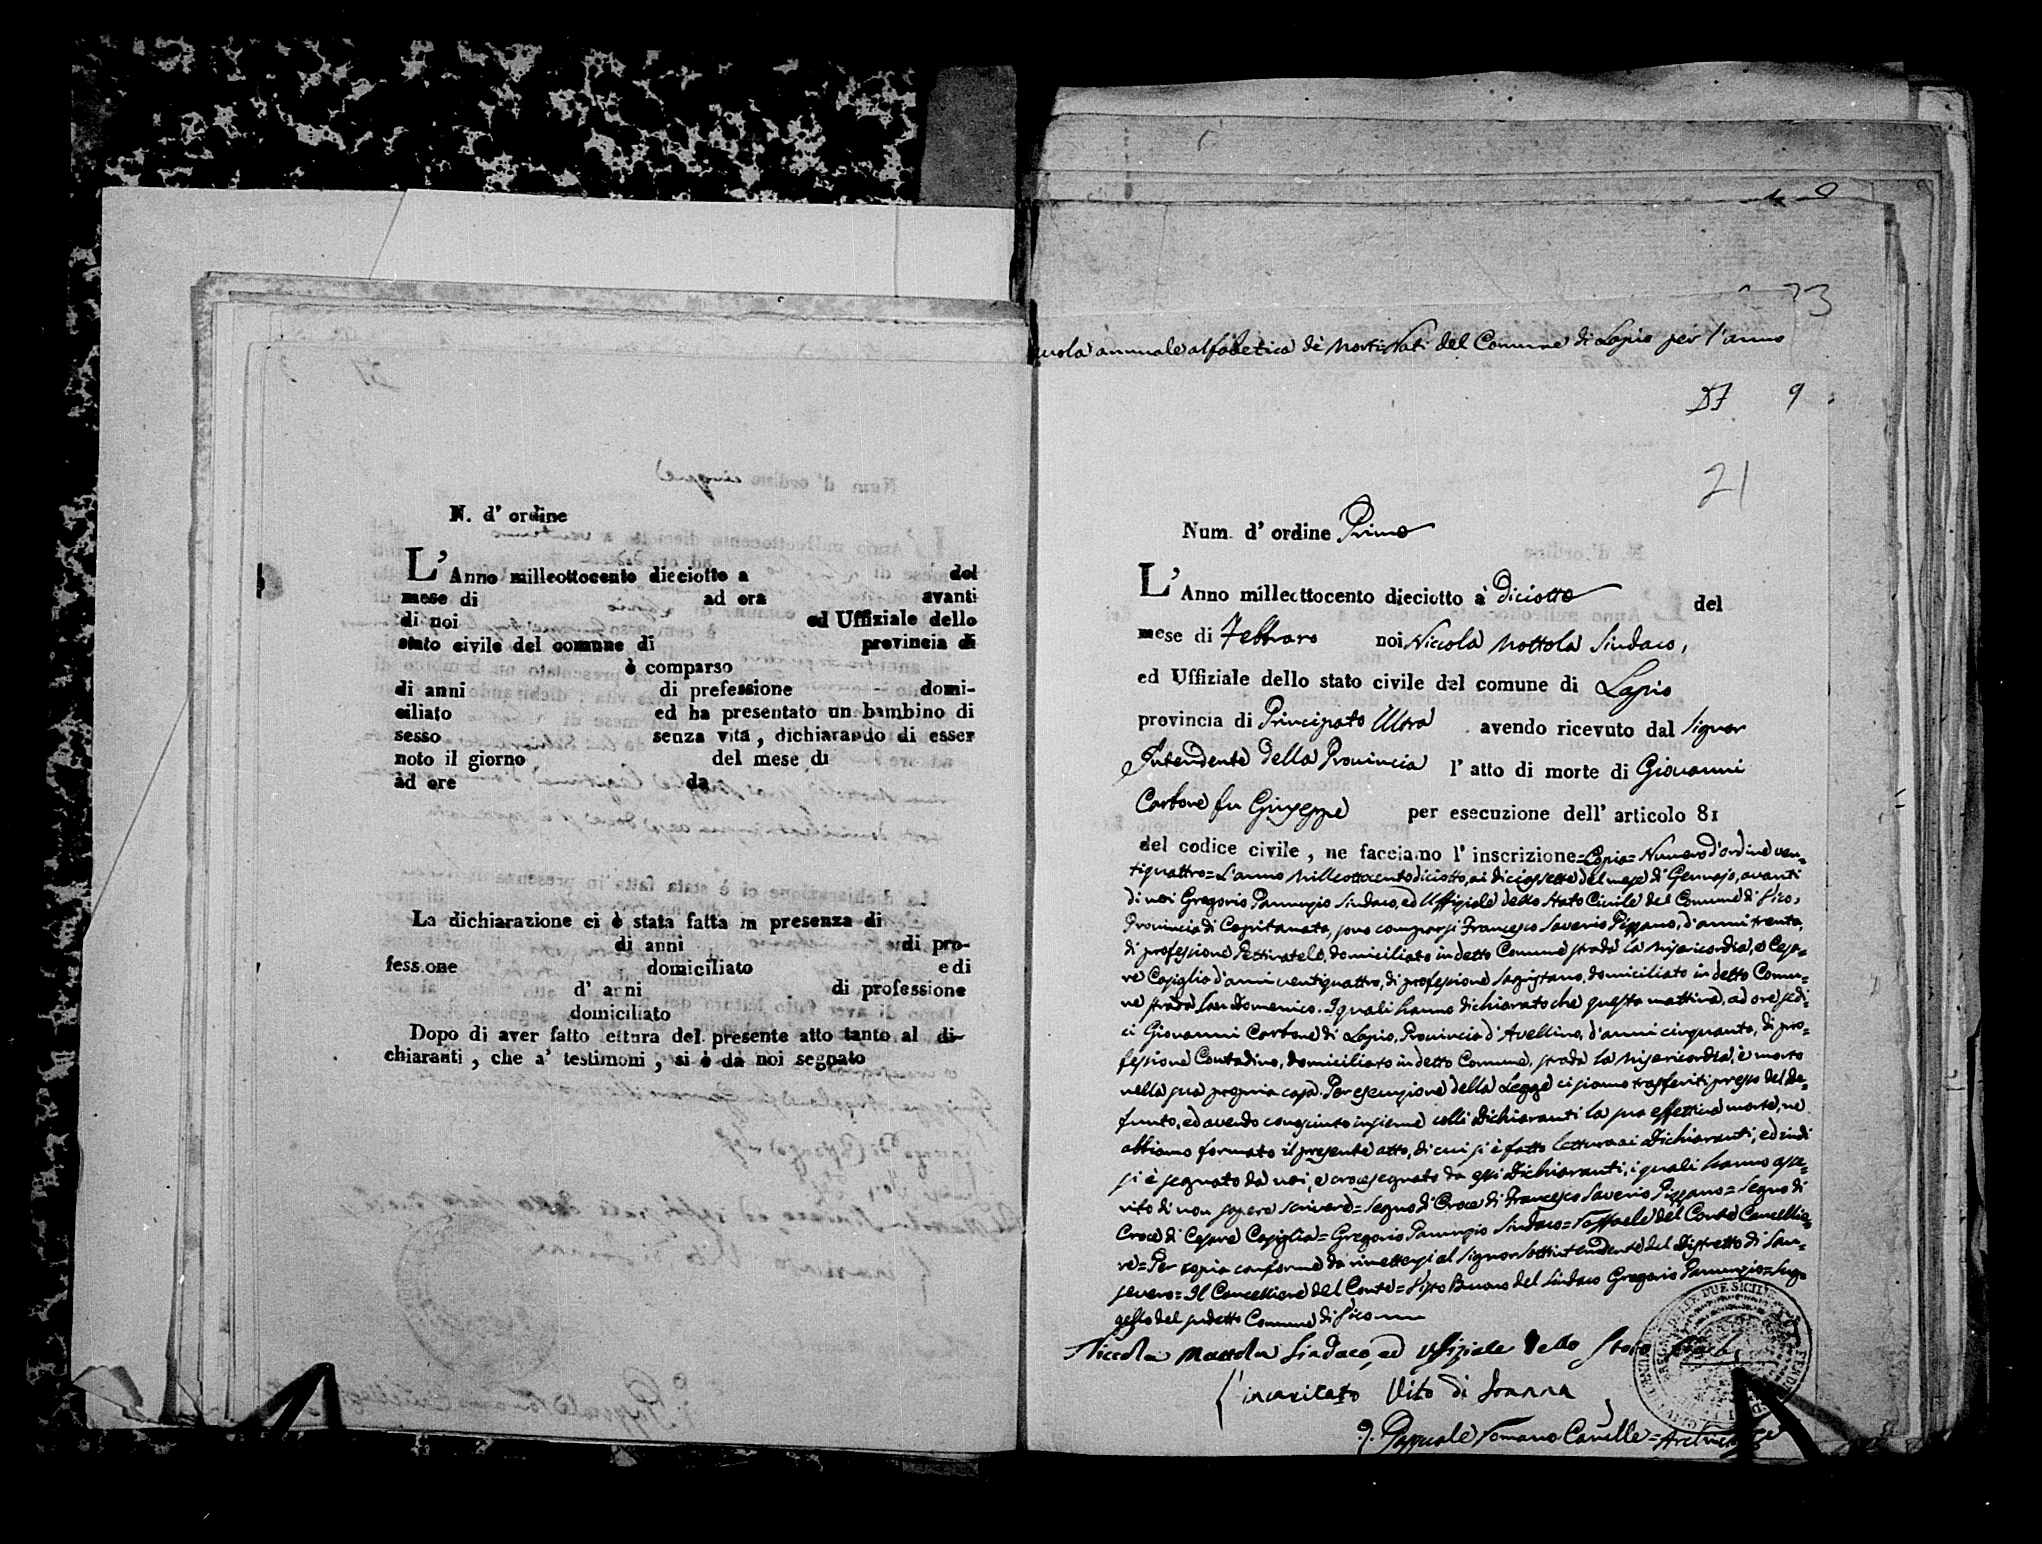 N. d' ordine
L' Anno milleottocento dieciotto a del
mese di ad ora avanti
di noi ed Uffiziale dello
stato civile del comune di provincia di
è comparso
di anni di prefessione domi-
ciliato ed ha presentato un bambino di
sesso senza vita, dichiarando di esser
noto il giorno del mese di
ad ore da
La dichiarazione ci è stata fatta in presenza di
di anni di pro-
fessione domiciliato e di
d' anni di professione
domiciliato
Dopo di aver fatto lettura del presente atto tanto al di-
chiaranti, che a' testimoni, si è da noi segnato
73
annuale alfabetica de' Morti Nati del Comune di Lapio per l'anno
9
21
Num. d' ordine Primo
L' Anno milleottocento dieciotto a' diciotto del
mese di Febbraro noi Niccola Mottola Sindaco,
ed Uffiziale dello stato civile del comune di Lapio
provincia di Principato Ultra avendo ricevuto dal Signor
Intendente della Provincia l' atto di morte di Giovanni
Carbone fu Giuseppe per esecuzione dell' articolo 81
del codice civile, ne facciamo l' inscrizione = Copia = Numero d'ordine ven-
tiquattro = L'anno Milleottocentodiciotto, ai diciassette del mese di Gennajo, avanti
di noi Gregorio Panunzio Sindaco, ed Uffiziale dello Stato Civile del Comune di
Provincia di Capitanata, sono comparsi Francesco Saverio Pizzano, d'anni trenta,
di professione Vettiratele, domiciliato in detto Comune strada la Misericordia, e Cesa-
re Casiglia d'anni ventiquattro, di professione Sagristano, domiciliato in detto Comu-
ne strada San Domenico. I quali hanno dichiarato che questa mattina, ad ore sedi-
ci Giovanni Carbone di Lapio, Provincia d'Avellino, d'anni cinquanta, di pro-
fessione Contadino, domiciliato in detto Comune, strada la Misericordia, è morto
nella sua propria casa. Per esecuzione della Legge ci siamo trasferiti presso del de-
funto, ed avendo conosciuto insieme colli Dichiaranti la sua effettiva morte, ne
abbiamo formato il presente atto, di cui si è fatto lettura ai Dichiaranti, ed indi
si è segnato da noi, e crocesegnato da essi Dichiaranti, i quali hanno asse-
rito di non sapere scrivere = Segno di Croce di Francesco Saverio Pizzano = Segno di
Croce di Cesare Casiglia = Gregorio Panunzio Sindaco = Raffaele del Conte Cancellie-
re = Per copia conforme da rimettersi al Signor Sottintendente del Distretto di San-
severo = Il Cancelliere del Conte = Visto Buono del Sindaco Gregorio Panunzio = Sug-
gello del sudetto Comune di
Niccola Mottola Sindaco, ed Uffiziale dello Stato
L'incaricato Vito di Ioanna
Pasquale Romano